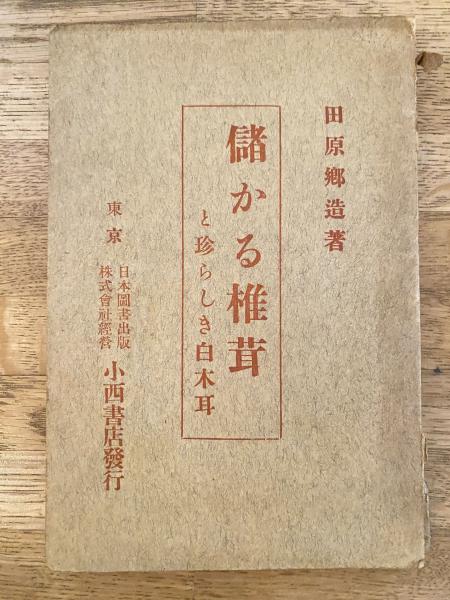 田原鄕造著
儲かる椎茸
と珍らしき白木耳
東京
日本圖書出版
株式會社經營
小西書店發行